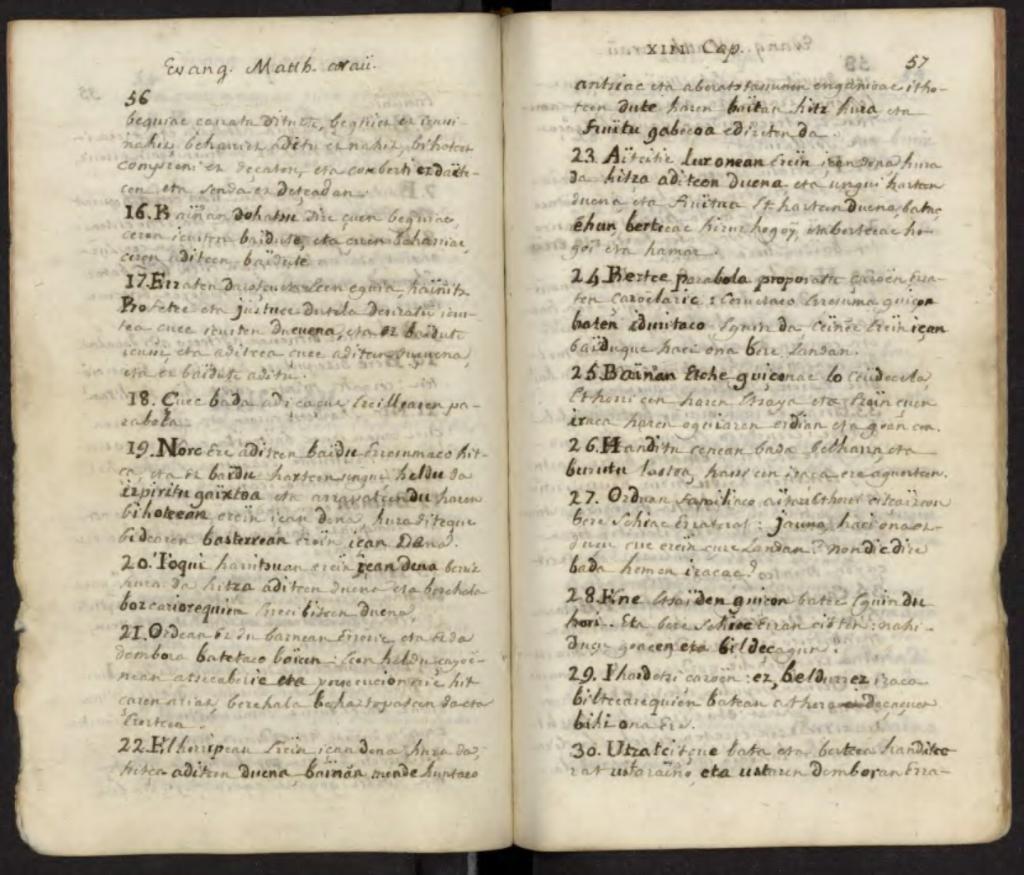 Evang. Matth. araü.
56
beguiac
nahiz, behariez aditu ez nahiz, bihotcez
compreni ez deçaten, eta comberti ez daite-
cen eta senda ez deçadan.
16. Bainan dohatsu dire çuen beguiac
ceren icusten baidute, eta çuen beharriac,
ceren aditcen baidute.
17. Erraten darotçuet ecen eguia, hainitz
Profetec eta justuec dutela desiratu icus-
tea çuec icusten duçuena, eta ez baidute
icusi, eta aditcea çuec aditcen duçuena,
eta ez baidute aditu.
18. Çuec bada adi çaçue Ereillearen pa-
rabola.
19. Norc ere aditcen baidu Erresumaco hit-
ça, eta ez baidu hartcen, heldu da
izpiritu gaixtoa eta arrapatcen du haren
bihotcean erein içan dena, hura diteque
bidearen basterrean erein içan dena.
20. Toqui harritsuan erein içan dena berriz
hura da hitza aditcen duena eta berehala
bozcariorequien errecibitcen duena,
21. Ordean ez du barnean erroric eta ez da
dembora batetaco baicen: ecen heldu
nean eta persecucioneric hit-
çaren ariaz, berehala da eta
22. Elhorripean erein içan dena hura da,
hitça aditcen duena, bainan munde huntaco
XIII Cap.
57
antsiac eta aberatstasunen enganioac itho-
tcen dute haren baitan hitz hura eta
fruitu gabecoa ediretenda.
23. Aitcitic lur onean erein içan dena hura
da hitza aditcen duena eta ungui hartcen
duena, eta fruitua ekhartcen duena, batac
ehun, bertceac hirur hogoy, eta bertceac ho-
goi eta hamar.
24. Bertce parabola proposatu çaroen erra-
ten çaroelaric: Ceruetaco Erresuma guiçon
baten iduritaco eguin da ceinec erein içan
baiduque haci ona bere landan.
25. Bainan Etche guiçonac lo ceudecela,
Ethorri cen haren Etsaya eta erein çuen
iraca haren oguiaren erdian eta goan cen.
26. Handitu cenean bada belharra eta
burutu lastoa, han cen iraca ere aguertcen.
27. Orduan familiaco aitari ethorri citçaizcon
bere sehiac erraterat: jauna, haci ona ez-
duçu çuc erein çure landan? nondic dire
bada hemen iracac?
28. Ene etsai den guiçon batec eguin du
hori. Eta bere sehiec erran cioten: nahi-
duçu goacen eta bil deçagun?
29. Ihardetsi çaroen: ez, beldurrez iraca
biltcearequien batean athera deçaçuen
bihi ona ere.
30. Utzatcitçue bata eta bertcea handitce-
rat uztaraino eta uztaren demboran erra-